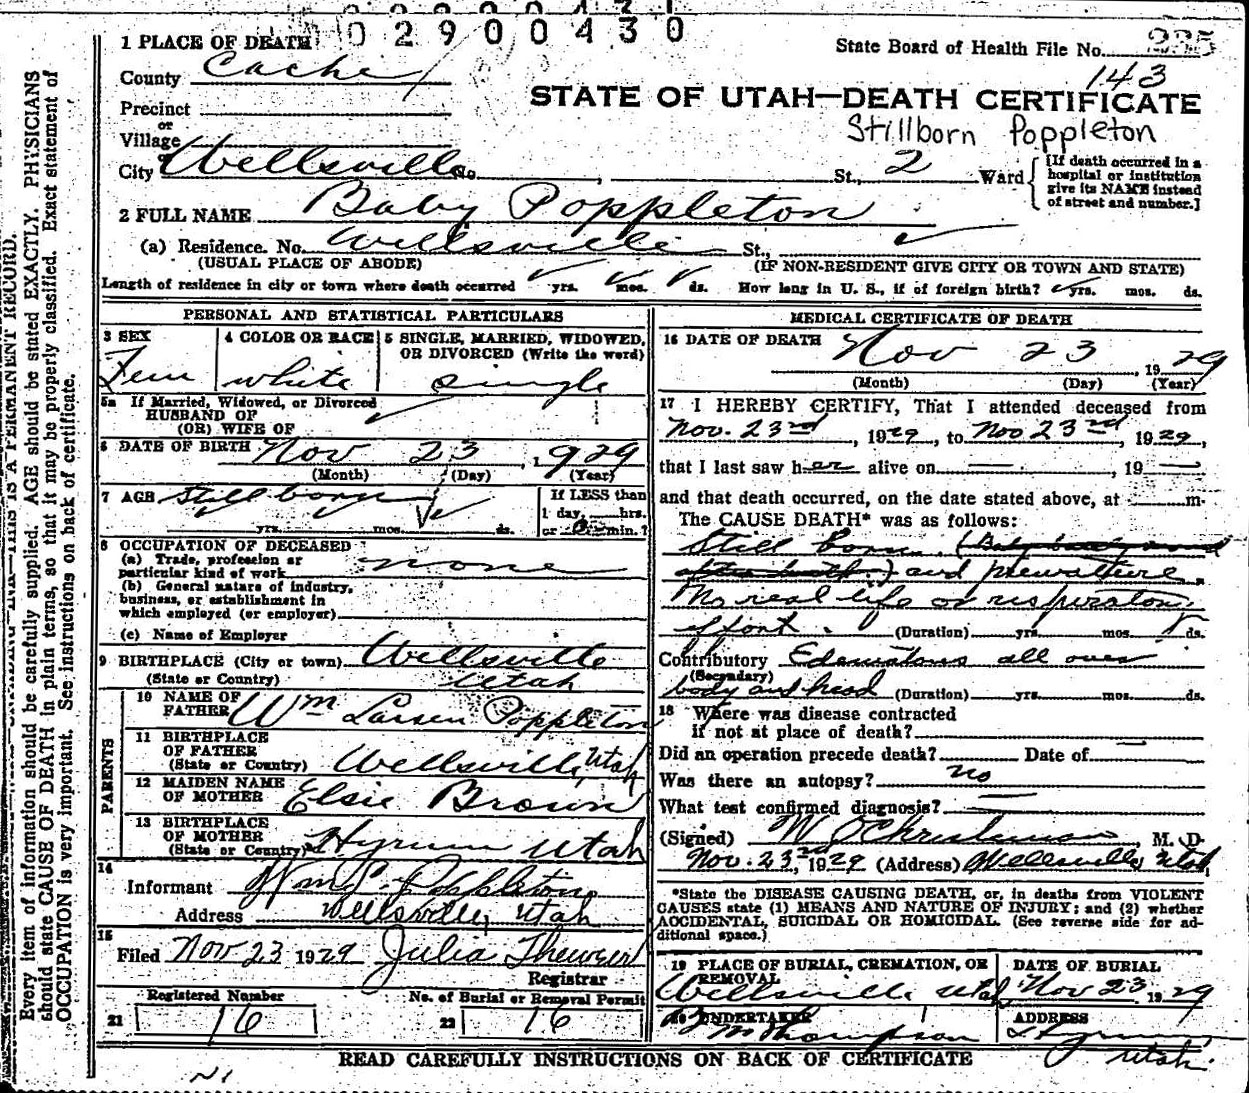 02900430
1 PLACE OF DEATH
State Board of Health File No. 335
County Cache
143
STATE OF UTAH—DEATH CERTIFICATE
Precinct
or
Village
Stillborn Poppleton
or
City Wellsville No. , St., 2 Ward
[If death occurred in a hospital or institution give its NAME instead of street and number.]
2 FULL NAME Baby Poppleton
(a) Residence. No. Wellsville St., ✓
(USUAL PLACE OF ABODE) (IF NON-RESIDENT GIVE CITY OR TOWN AND STATE)
Length of residence in city or town where death occurred ✓ yrs. ✓ mos. ✓ ds. How long in U. S., if of foreign birth? ✓ yrs. mos. ds.
PERSONAL AND STATISTICAL PARTICULARS
3 SEX
Fem
4 COLOR OR RACE
white
5 SINGLE, MARRIED, WIDOWED, OR DIVORCED (Write the word)
single
5a If Married, Widowed, or Divorced
HUSBAND OF
(OR) WIFE OF
✓
6 DATE OF BIRTH Nov 23, 1929
(Month) (Day) (Year)
7 AGE Still born
yrs. mos. ds.
If LESS than
1 day, hrs.
or 0 min.?
8 OCCUPATION OF DECEASED
(a) Trade, profession or
particular kind of work none
(b) General nature of industry,
business, or establishment in
which employed (or employer)
(c) Name of Employer
9 BIRTHPLACE (City or town) Wellsville
(State or Country) Utah
PARENTS
10 NAME OF
FATHER Wm Larsen Poppleton
11 BIRTHPLACE
OF FATHER
(State or Country) Wellsville, Utah
12 MAIDEN NAME
OF MOTHER Elsie Brown
13 BIRTHPLACE
OF MOTHER
(State or Country) Hyrum Utah
14
Informant Wm L. Poppleton
Address Wellsville, Utah
15
Filed Nov 23 1929 Julia
Registrar
Registered Number
21 16
No. of Burial or Removal Permit
22 16
MEDICAL CERTIFICATE OF DEATH
16 DATE OF DEATH Nov 23, 1929
(Month) (Day) (Year)
17 I HEREBY CERTIFY, That I attended deceased from
Nov. 23rd, 1929, to Nov 23rd, 1929,
that I last saw her alive on —, 19 —
and that death occurred, on the date stated above, at m.
The CAUSE DEATH* was as follows:
Still born. (Baby
after birth.) and premature.
No real life or respiratory
effort. (Duration) yrs. mos. ds.
Contributory Edematous all over
(Secondary)
body and head (Duration) yrs. mos. ds.
18 Where was disease contracted
if not at place of death?
Did an operation precede death? Date of —
Was there an autopsy? no
What test confirmed diagnosis? —
(Signed) M. D.
Nov. 23rd, 1929 (Address) Wellsville, Utah
*State the DISEASE CAUSING DEATH, or, in deaths from VIOLENT
CAUSES state (1) MEANS AND NATURE OF INJURY; and (2) whether
ACCIDENTAL, SUICIDAL OR HOMICIDAL. (See reverse side for ad-
ditional space.)
19 PLACE OF BURIAL, CREMATION, OR
REMOVAL
Wellsville Utah
DATE OF BURIAL
Nov 23 1929
20 UNDERTAKER
Thompson
ADDRESS
Hyrum
Utah.
READ CAREFULLY INSTRUCTIONS ON BACK OF CERTIFICATE
Every item of information should be carefully supplied. AGE should be stated EXACTLY. PHYSICIANS
should state CAUSE OF DEATH in plain terms, so that it may be properly classified. Exact statement of
OCCUPATION is very important. See instructions on back of certificate.
THIS IS A PERMANENT RECORD.